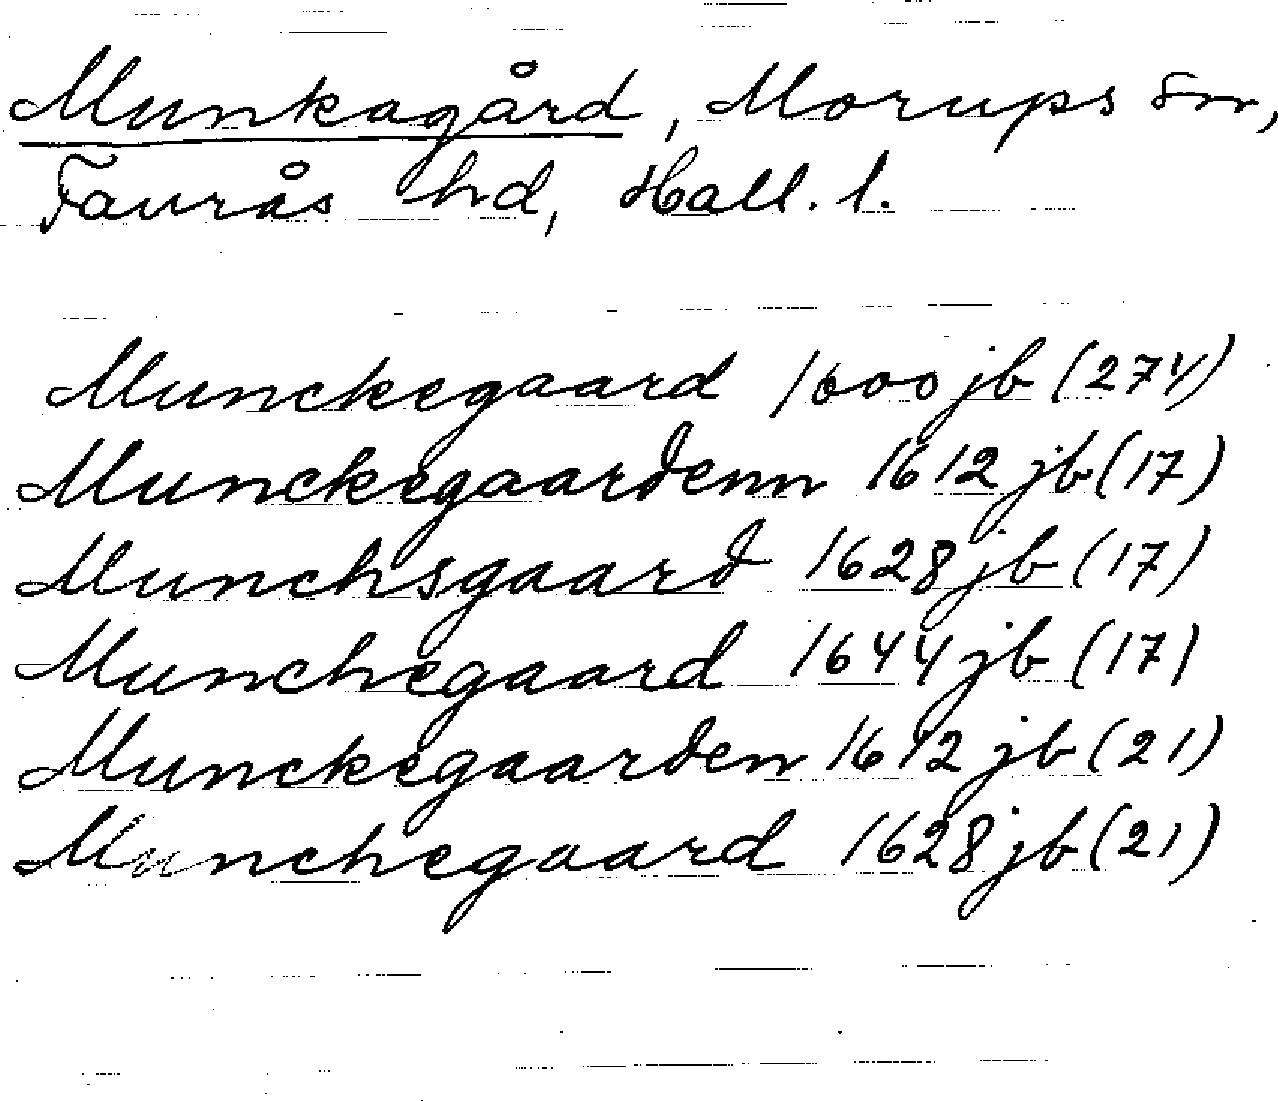 Munkagård, Morups sn,
Faurås hd, Hall. l.
Munckegaard 1600 jb (27v)
Munckegaardenn 1612 jb (17)
Munchsgaard 1628 jb (17)
Munchegaard 1644 jb (17)
Munckegaarden 1612 jb (21)
Munchegaard 1628 jb (21)